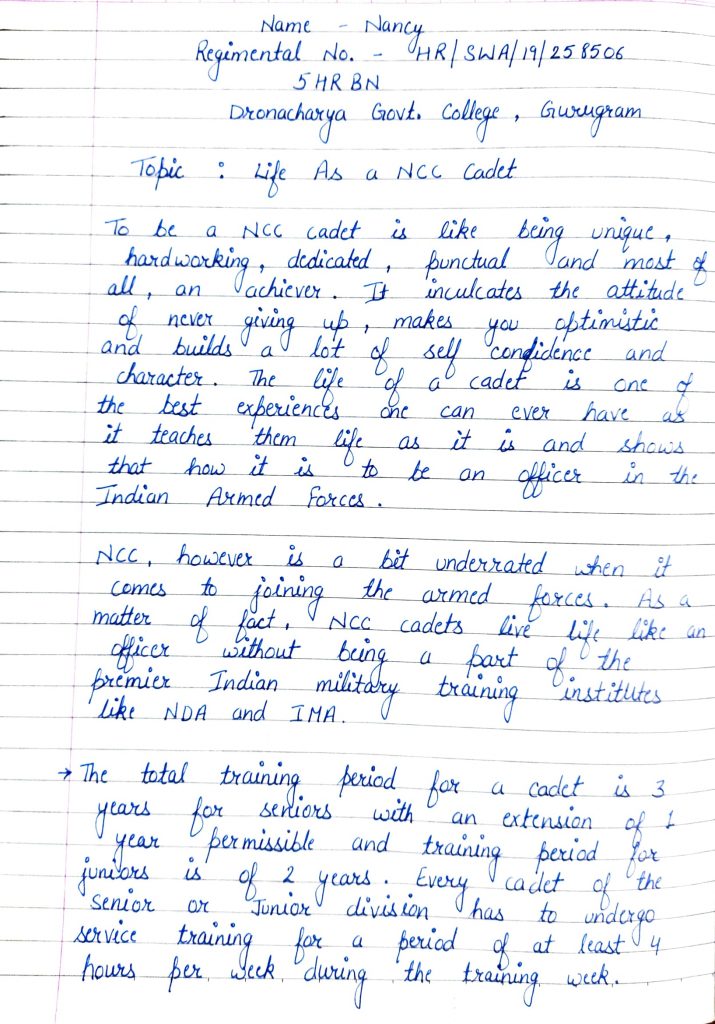 Name - Nancy
Regimental No. - HR/SWA/19/258506
5 HR BN
Dronacharya Govt. College, Gurugram
Topic : Life As a NCC Cadet
To be a NCC cadet is like being unique,
hardworking, dedicated, punctual and most of
all, an achiever. It inculcates the attitude
of never giving up, makes you optimistic
and builds a lot of self confidence and
character. The life of a cadet is one of
the best experiences one can ever have as
it teaches them life as it is and shows
that how it is to be an officer in the
Indian Armed Forces.
NCC, however is a bit underrated when it
comes to joining the armed forces. As a
matter of fact, NCC cadets live life like an
officer without being a part of the
premier Indian military training institutes
like NDA and IMA.
→ The total training period for a cadet is 3
years for seniors with an extension of 1
year permissible and training period for
juniors is of 2 years. Every cadet of the
senior or Junior division has to undergo
service training for a period of at least 4
hours per week during the training week.